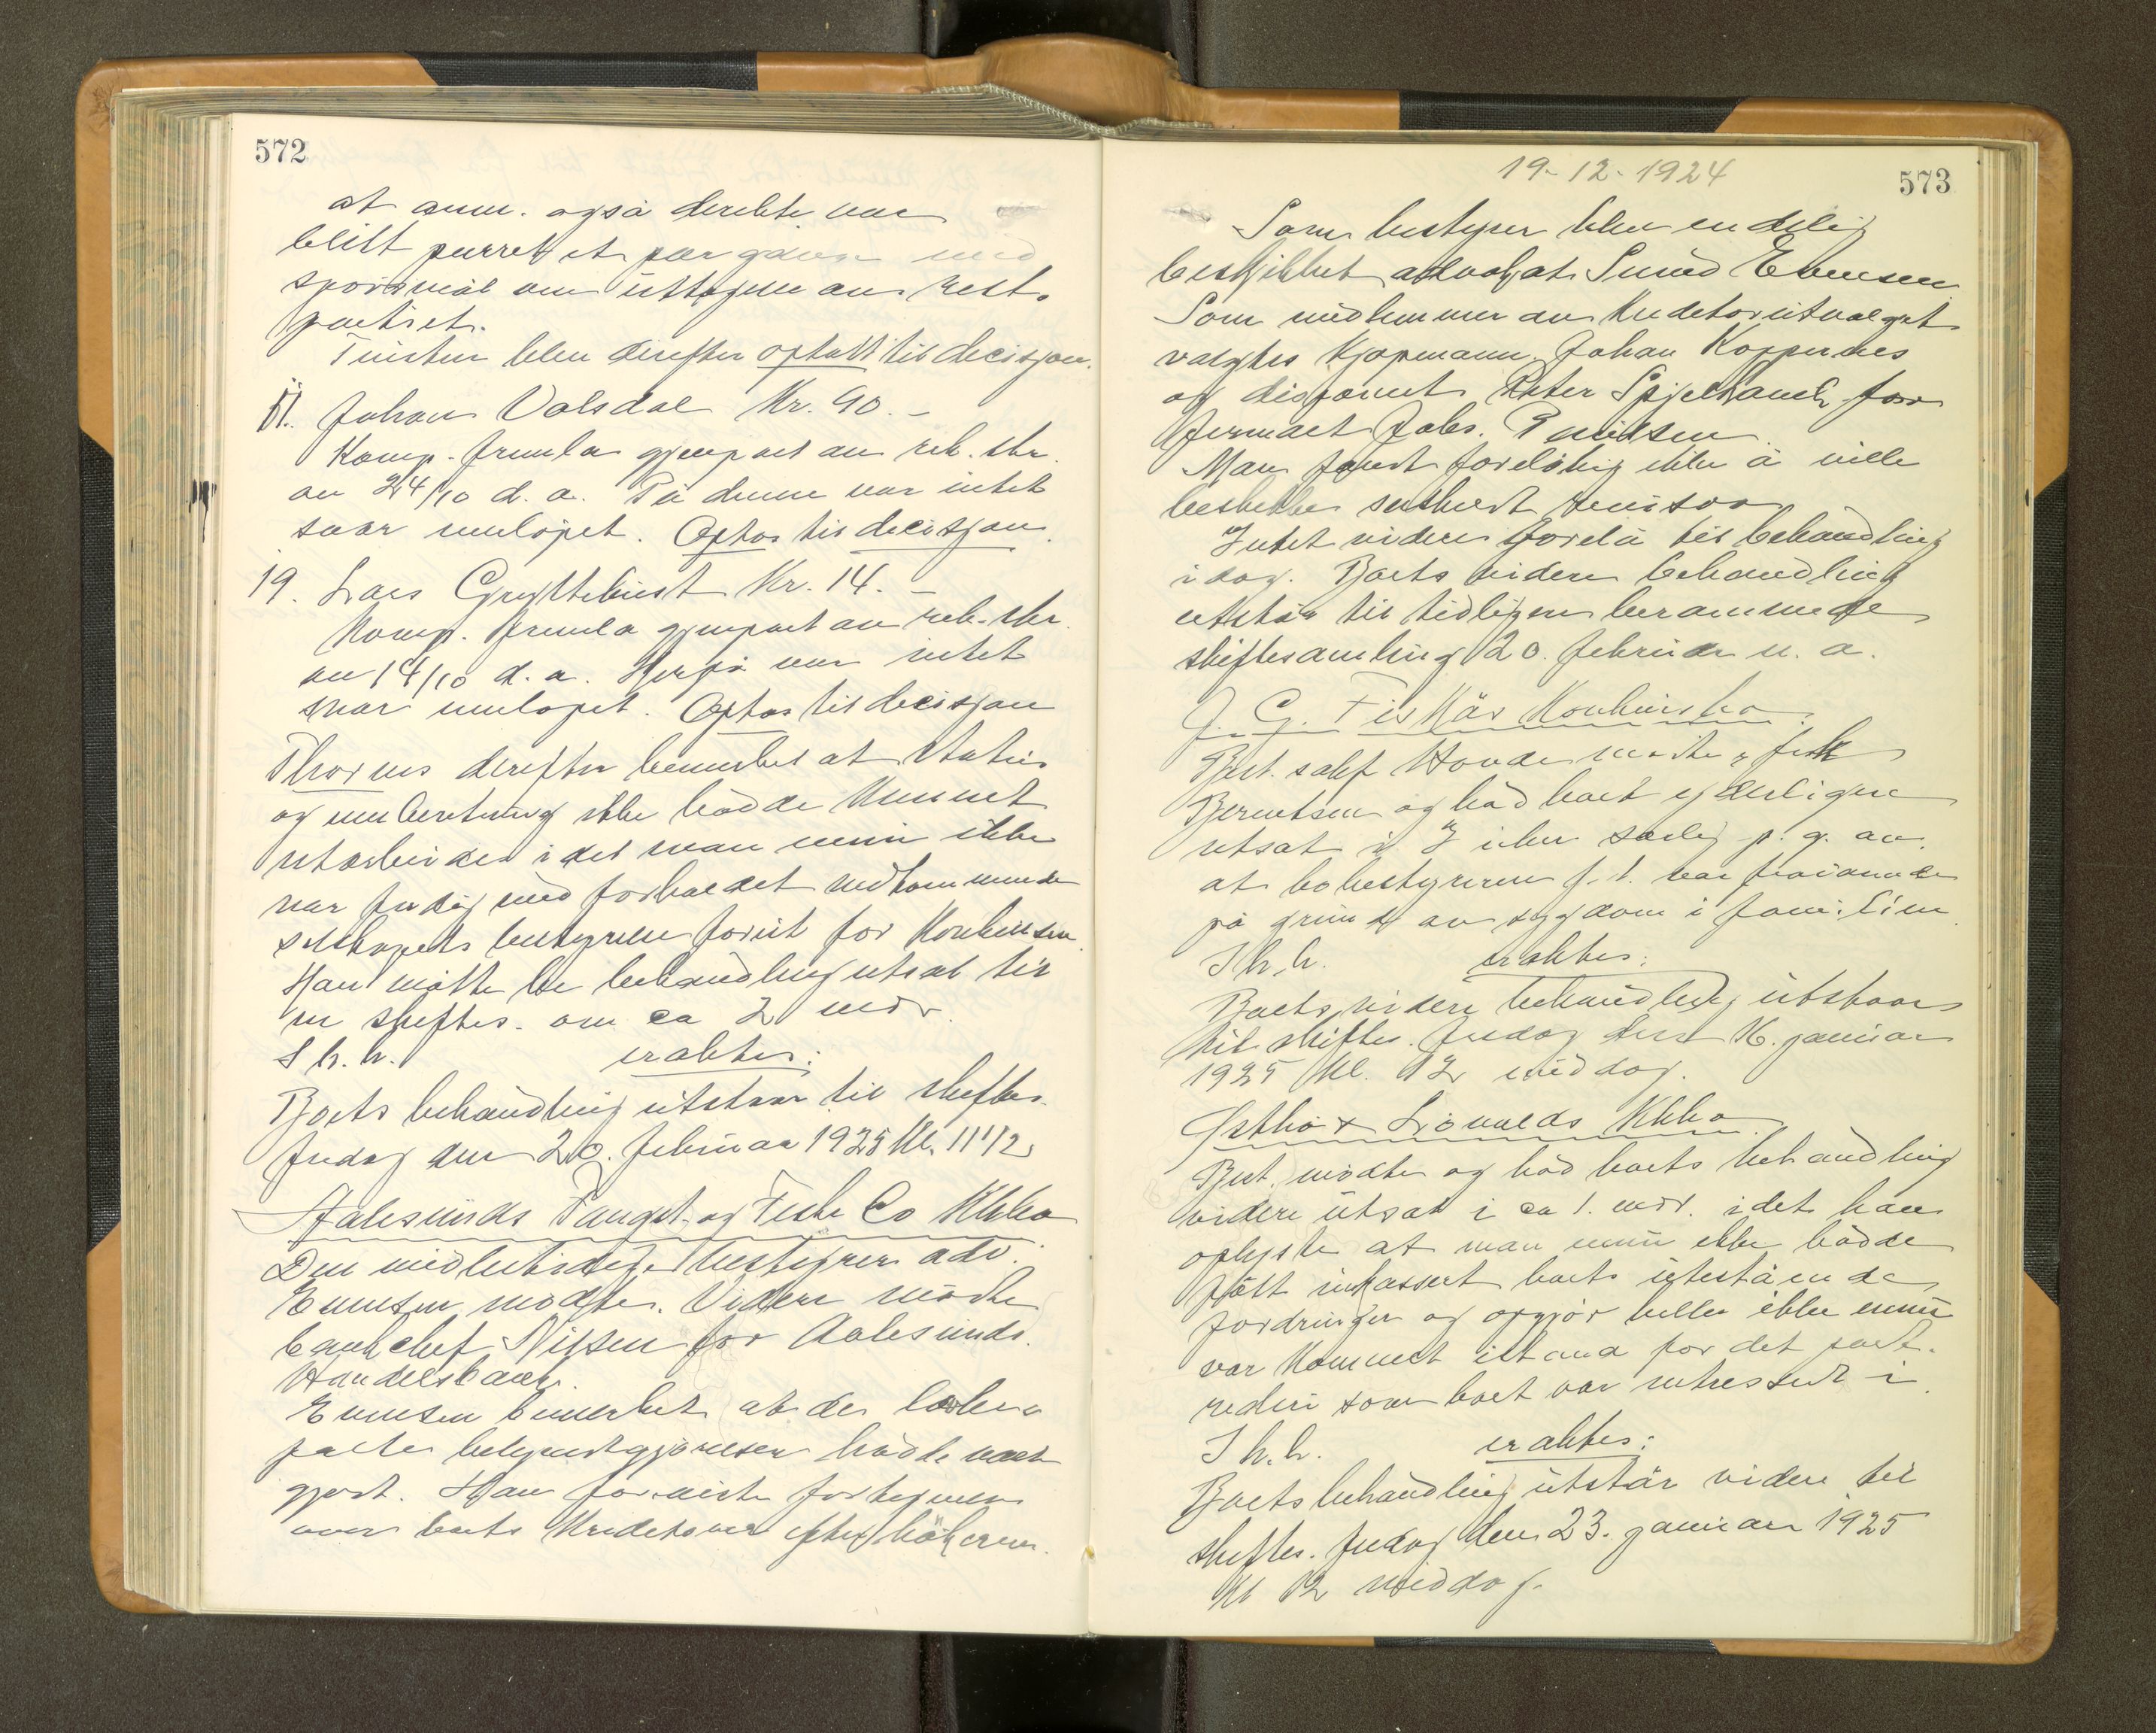 572
at anm. også direkte var
blitt purret et par ganger med
spörsmål om uttagelse av rest-
partiet.
Tvisten blev derefter optatt til decisjon.
Johan Valsdal Kr. 90.-
Komp. fremla gjenpart av rek. skr.
av 24/10 d. a. På denne var intet
svar innlöpet. Optas til decisjon.
19. Lars Gryttebust Kr. 14.-
Komp. fremla gjenpart av rek. skr.
av 14/10 d. a. Herpå var intet
svar innlöpet. Optas til decisjon
derefter bemerket at status
og innberetning ikke hadde kunnet
utarbeides idet man ennu ikke
var ferdig med forholdet vedkommende
selskapets bestyrelse forut for konkursen.
Han måtte be behandling utsat til
ny skiftes. om ca 2 mdr.
S h. h. eraktes:
Boets behandling utstaar til skiftes.
fredag den 20. februar 1925 kl. 11 1/2
Aalesunds Fangst og Fiske Co Kkbo
Den midlertidige bestyrer adv.
Evensen mödte. Videre mödte
bankchef Nilsen for Aalesunds
Handelsbank.
Evensen bemerket at de lovbe-
falte bekjentgjörelser hadde vært
gjort. Han foreviste fortegnelse
over boets kreditorer efter bökerne.
19-12-1924
573
Som bestyrer blev endelig
beskikket advokat Sund Evensen
Som medlemmer av kreditorutvalget
valgtes kjöpmann Johan Koppernes
og disponent Peter Spjelkavik for
firmaet Jobs.
Man fandt forelöbig ikke å ville
beskikke særskilt revisor
Intet videre forelå til behandling
idag. Boets videre behandling
utstår til tidligere berammede
skiftesamling 20. februar n. a.
J. G. Fiskås Konkursbo.
Best. sakf Hovde mödte v/ fuld
Berntsen og bad boet yderligere
utsat i uker særlig p. g. av.
at bobestyreren f. t. var fraværende
på grund av sygdom i familien.
S h. h. eraktes:
Boets videre behandling utstaar
til skiftes. fredag den 16. januar
1925 kl. 12 middag.
Best. mödte og bad boets behandling
videre utsat i ca 1. mdr. idet han
oplyste at man ennu ikke hadde
fått inkassert boets utestående
fordringer og opgjör heller ikke ennu
var kommet istand for det part-
rederi som boet var interessert i.
S h. h. eraktes:
Boets behandling utstår videre til
skiftes. fredag den 23. januar 1925
kl 12 middag.